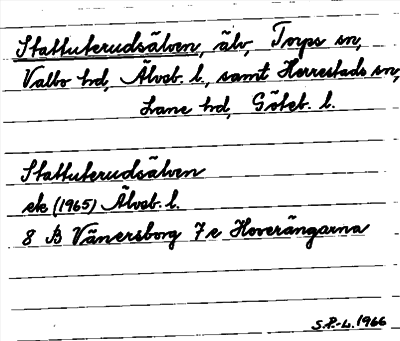 Stattuterudsälven, älv, Torps sn,
Valbo hd, Älvsb. l., samt Herrestads sn,
Lane hd, Göteb. l.
Stattuterudsälven
ek (1965) Älvsb. l.
8 B Vänersborg 7e Hoverängarna
S.P.-L. 1966